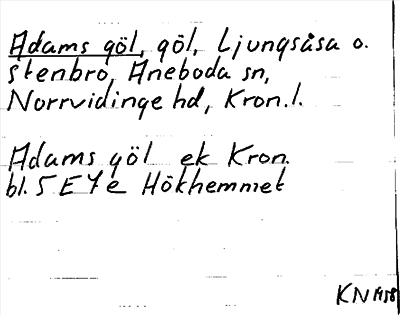 Adams göl, göl, Ljungsåsa o.
Stenbro, Aneboda sn,
Norrvidinge hd, Kron. l.
Adams göl ek Kron.
bl. 5 E 7 e Hökhemmet
KN 1958